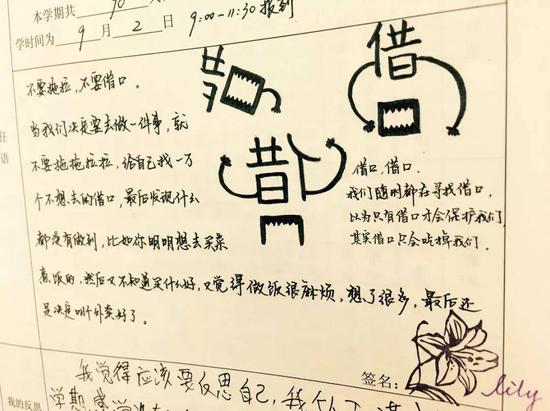 本学期共 90
学时间为 9 月 2 日 9:00-11:30 报到
不要拖拉,不要借口。
当我们决定要去做一件事,就
不要拖拖拉拉,给自己找一万
个不想去的借口,最后发现什么
都没有做到,比如你明明想去买菜
煮饭的,然后又不知道买什么好,又觉得做饭很麻烦,想了很多,最后还
是决定叫个外卖好了。
借
借
借口,借口。
我们随时都在寻找借口,
以为只有借口才会保护我们,
其实借口只会吃掉我们。
任
语
签名:
lily
我的反思
我觉得应该要反思自己,我
学期感觉